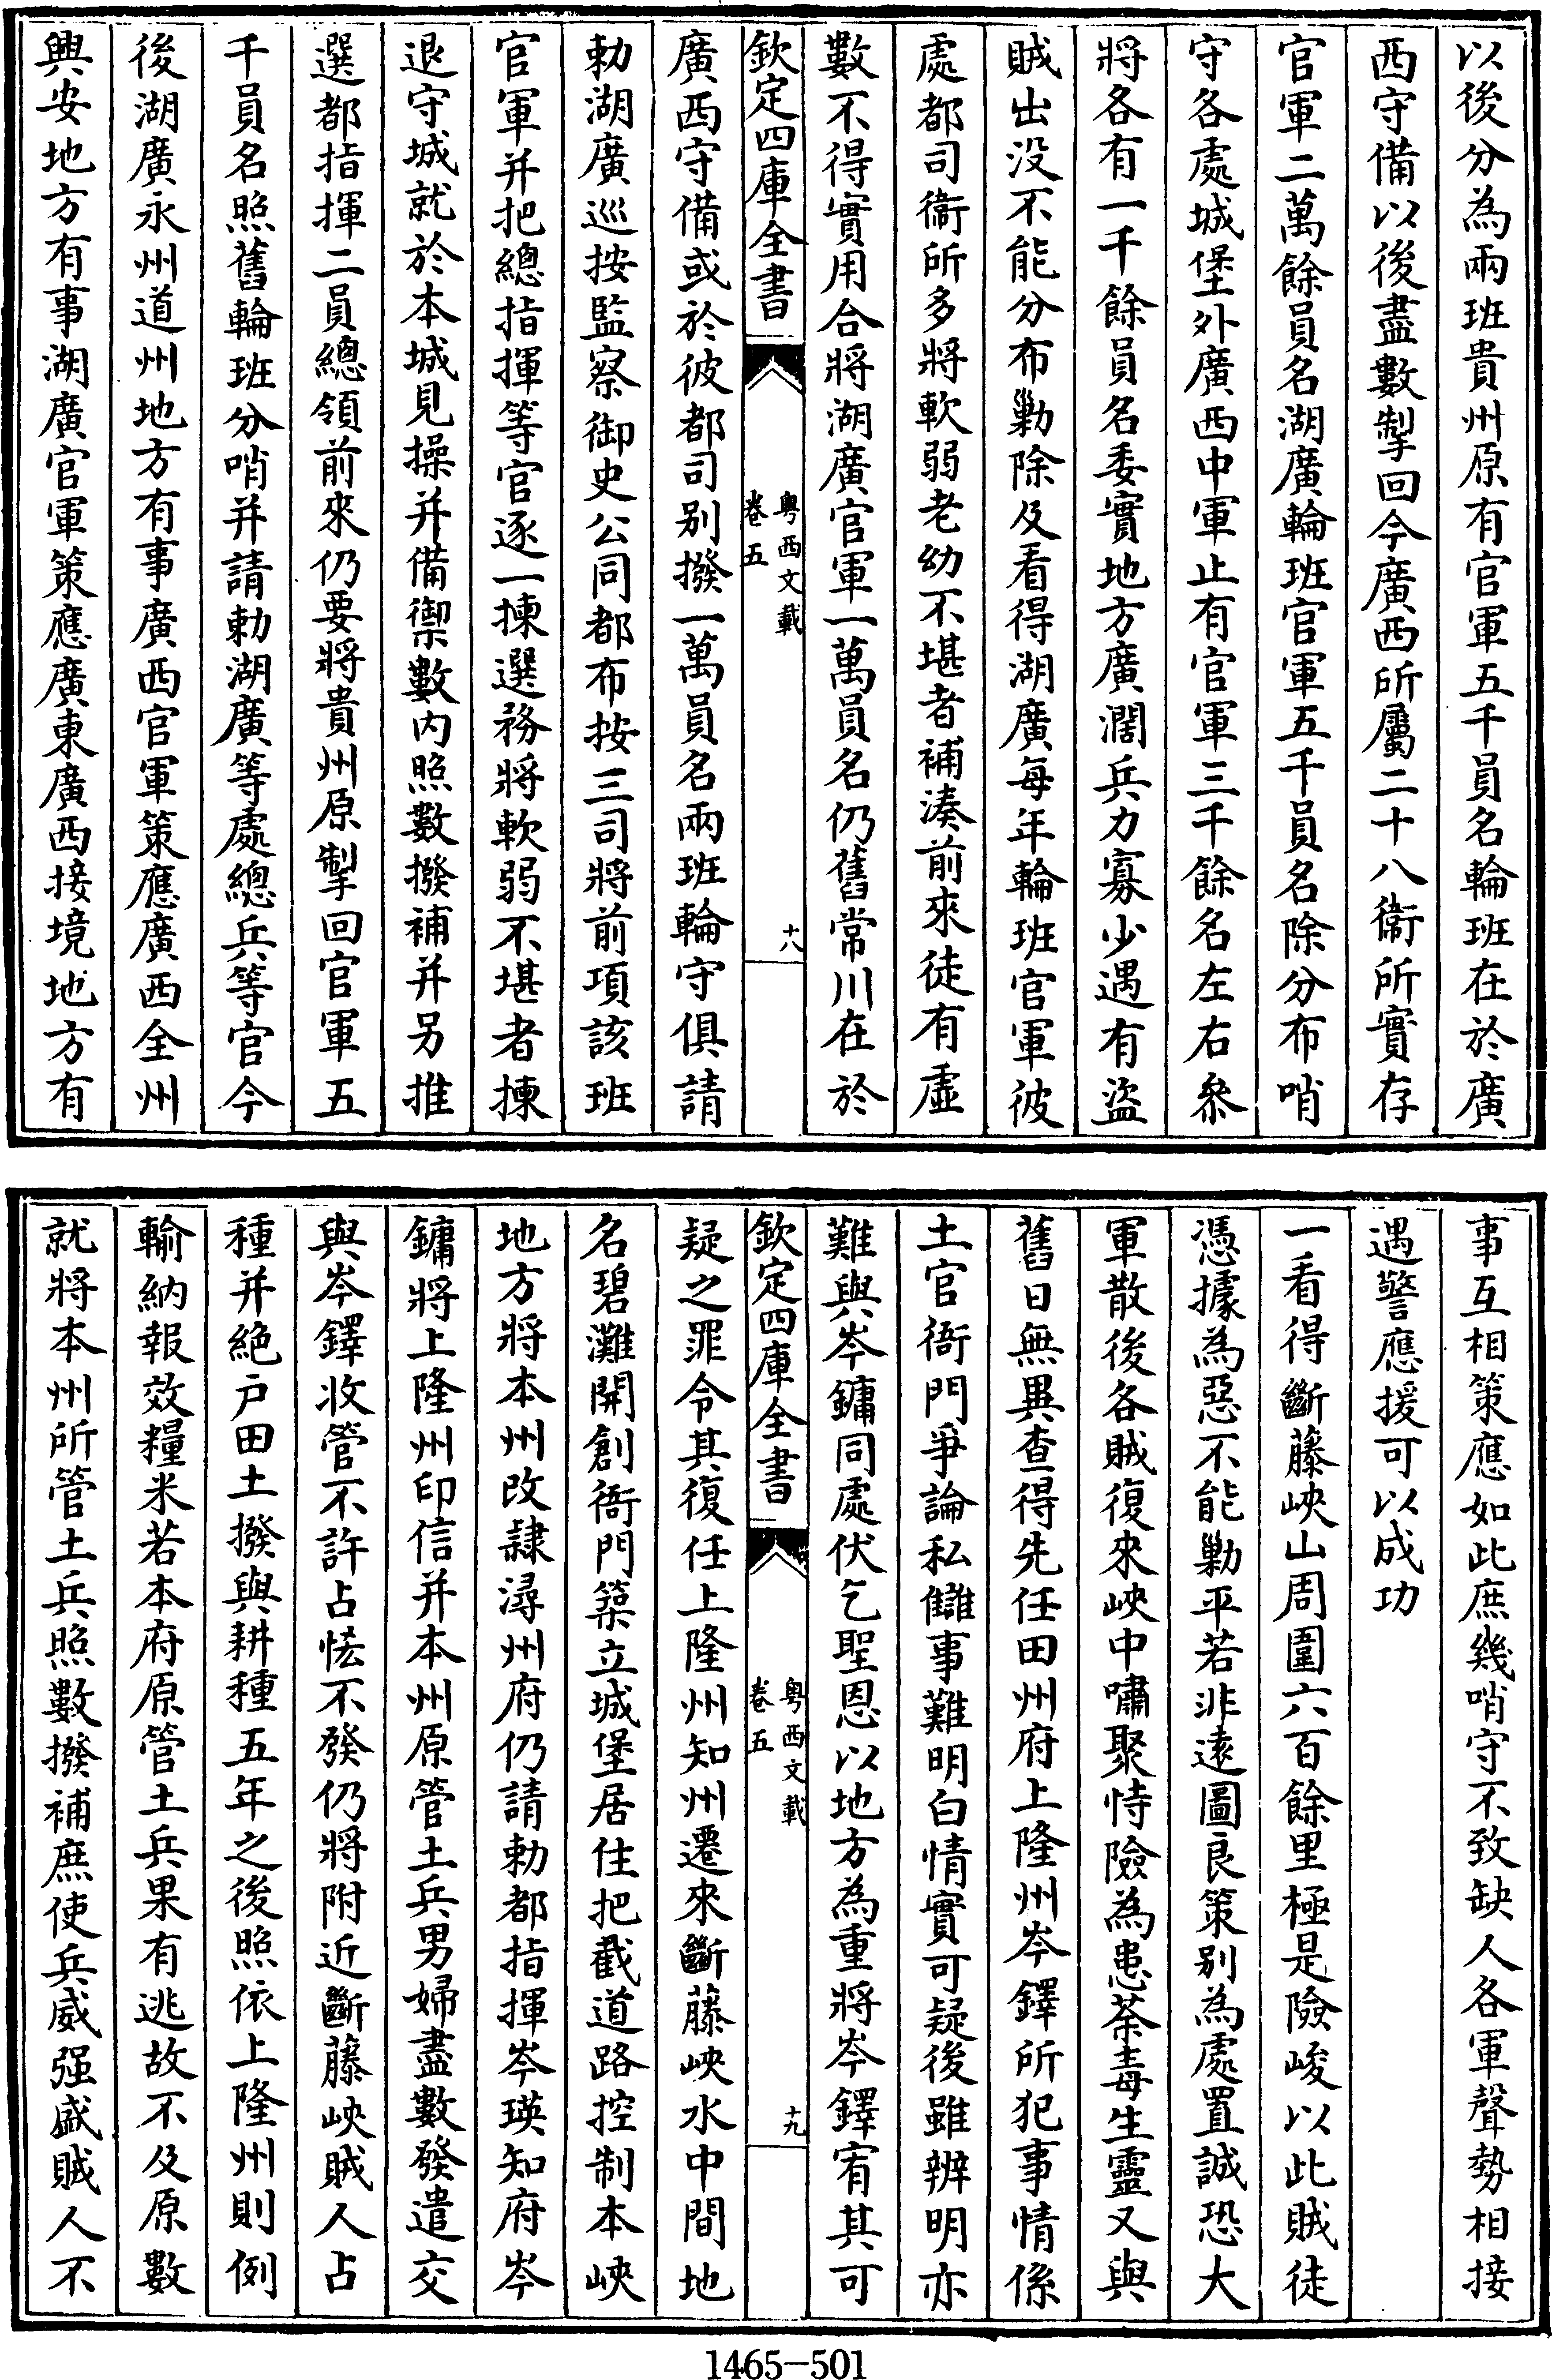 以後分為兩班貴州原有官軍五千員名輪班在於廣
西守備以後盡數掣回今廣西所屬二十八衞所實存
官軍二萬餘員名湖廣輪班官軍五千員名除分布哨
守各處城堡外廣西中軍止有官軍三千餘名左右叅
將各有一千餘員名委實地方廣濶兵力寡少遇有盜
賊出没不能分布勦除及看得湖廣每年輪班官軍彼
處都司衞所多將軟弱老幼不堪者補湊前來徒有虛
數不得實用合將湖廣官軍一萬員名仍舊常川在於
欽定四庫全書
粤西文載
卷五
十八
廣西守備或於彼都司别撥一萬員名兩班輪守俱請
勅湖廣巡按監察御史公同都布按三司將前項該班
官軍并把總指揮等官逐一揀選務將軟弱不堪者揀
退守城就於本城見操并備禦數内照數撥補并另推
選都指揮二員總領前來仍要將貴州原掣回官軍五
千員名照舊輪班分哨并請勅湖廣等處總兵等官今
後湖廣永州道州地方有事廣西官軍策應廣西全州
興安地方有事湖廣官軍策應廣東廣西接境地方有
事互相策應如此庶幾哨守不致缺人各軍聲勢相接
遇警應援可以成功
一看得斷藤峽山周圍六百餘里極是險峻以此賊徒
憑據為惡不能勦平若非逺圖良策别為處置誠恐大
軍散後各賊復來峽中嘯聚恃險為患荼毒生靈又與
舊日無異查得先任田州府上隆州岑鐸所犯事情係
土官衙門爭論私讎事難明白情實可疑後雖辨明亦
難與岑鏞同處伏乞聖恩以地方為重將岑鐸宥其可
欽定四庫全書
粤西文載
卷五
十九
疑之罪令其復任上隆州知州遷來斷藤峽水中間地
名碧灘開創衙門築立城堡居住把截道路控制本峽
地方將本州改隸潯州府仍請勅都指揮岑瑛知府岑
鏞將上隆州印信并本州原管土兵男婦盡數發遣交
與岑鐸收管不許占恡不發仍將附近斷藤峽賊人占
種并絶户田土撥與耕種五年之後照依上隆州則例
輸納報效糧米若本府原管土兵果有逃故不及原數
就將本州所管土兵照數撥補庶使兵威强盛賊人不
1465-501